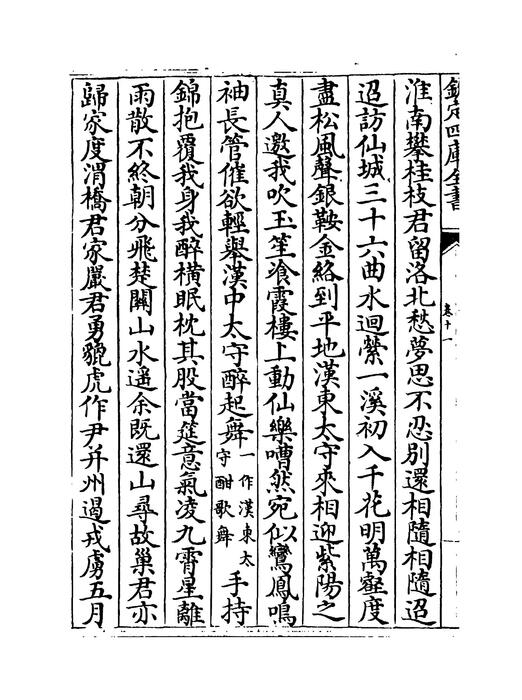 欽定四庫全書
卷十一
淮南攀桂枝君留洛北愁夢思不忍別還相隨相隨迢
迢訪仙城三十六曲水迴縈一溪初入千花明萬壑度
盡松風聲銀鞍金絡到平地漢東太守來相迎紫陽之
真人邀我吹玉笙飡霞樓上動仙樂嘈然宛似鸞鳳鳴
袖長管催欲輕舉漢中太守醉起舞一作漢東太守酣歌舞手持
錦抱覆我身我醉橫眠枕其股當筵意氣凌九霄星離
雨散不終朝分飛楚關山水遙余既還山尋故巢君亦
歸家度渭橋君家嚴君勇貔虎作尹并州遏戎虜五月